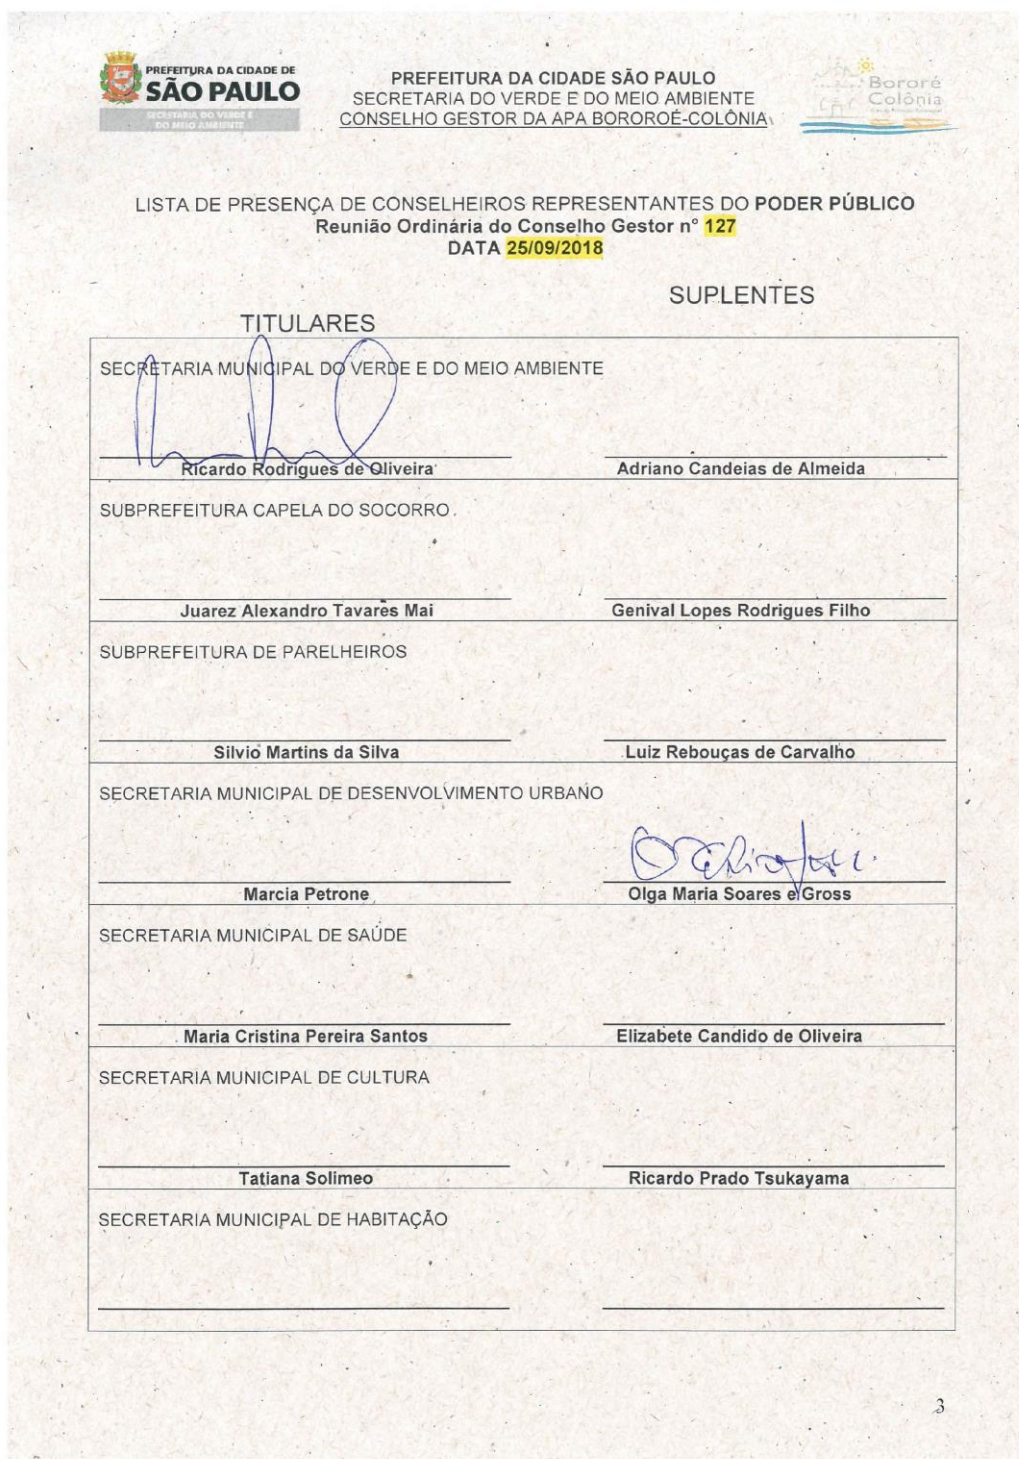 PREFEITURA DA CIDADE DE
SÃO PAULO
SECRETARIA DO VERDE E
DO MEIO AMBIENTE
PREFEITURA DA CIDADE SÃO PAULO
SECRETARIA DO VERDE E DO MEIO AMBIENTE
CONSELHO GESTOR DA APA BOROROÉ-COLÔNIA
Bororé
Colônia
LISTA DE PRESENÇA DE CONSELHEIROS REPRESENTANTES DO PODER PÚBLICO
Reunião Ordinária do Conselho Gestor n° 127
DATA 25/09/2018
SUPLENTES
TITULARES
SECRETARIA MUNICIPAL DO VERDE E DO MEIO AMBIENTE
Ricardo Rodrigues de Oliveira
Adriano Candeias de Almeida
SUBPREFEITURA CAPELA DO SOCORRO
Juarez Alexandro Tavares Mai
Genival Lopes Rodrigues Filho
SUBPREFEITURA DE PARELHEIROS
Silvio Martins da Silva
Luiz Rebouças de Carvalho
SECRETARIA MUNICIPAL DE DESENVOLVIMENTO URBANO
Marcia Petrone
Olga Maria Soares e Gross
SECRETARIA MUNICIPAL DE SAÚDE
Maria Cristina Pereira Santos
Elizabete Candido de Oliveira
SECRETARIA MUNICIPAL DE CULTURA
Tatiana Solimeo
Ricardo Prado Tsukayama
SECRETARIA MUNICIPAL DE HABITAÇÃO
3